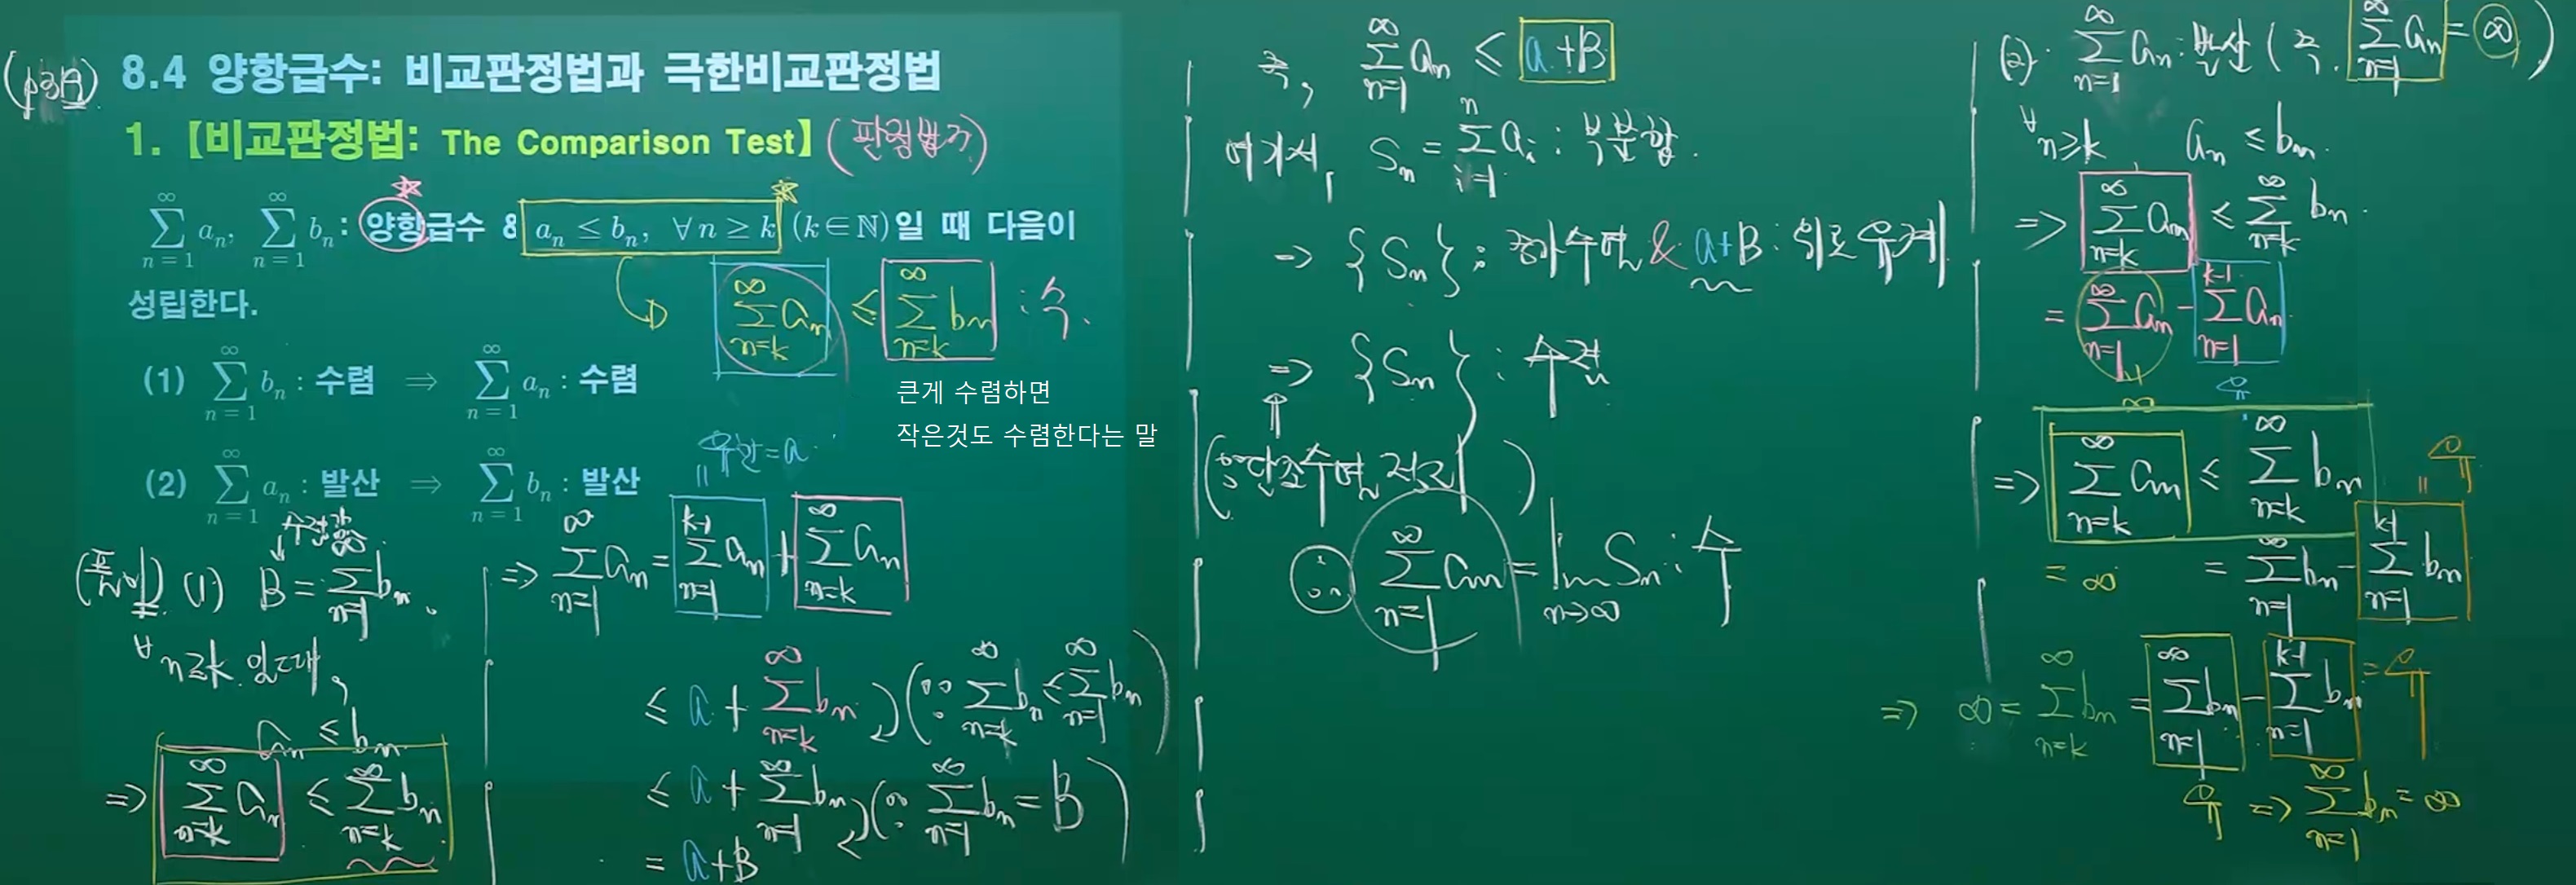 8.4 양항급수: 비교판정법과 극한비교판정법
1. 【비교판정법: The Comparison Test】 (판정법 7)
∑_{n=1}^{∞} a_n, ∑_{n=1}^{∞} b_n : 양항급수 & a_n ≤ b_n, ∀n ≥ k (k∈ℕ)일 때 다음이
성립한다.
∑_{n=k}^{∞} a_n ≤ ∑_{n=k}^{∞} b_n : 수.
(1) ∑_{n=1}^{∞} b_n : 수렴 ⇒ ∑_{n=1}^{∞} a_n : 수렴
큰게 수렴하면
작은것도 수렴한다는 말
(2) ∑_{n=1}^{∞} a_n : 발산 ⇒ ∑_{n=1}^{∞} b_n : 발산
수렴값
(풀이) (1) B = ∑_{n=1}^{∞} b_n.
∀n≥k 일 때,
a_n ≤ b_n
⇒ ∑_{n=k}^{∞} a_n ≤ ∑_{n=k}^{∞} b_n
유한 = a
⇒ ∑_{n=1}^{∞} a_n = ∑_{n=1}^{k-1} a_n + ∑_{n=k}^{∞} a_n
≤ a + ∑_{n=k}^{∞} b_n (∵ ∑_{n=k}^{∞} b_n ≤ ∑_{n=1}^{∞} b_n)
≤ a + ∑_{n=1}^{∞} b_n (∵ ∑_{n=1}^{∞} b_n = B)
= a+B
즉, ∑_{n=1}^{∞} a_n ≤ a+B
여기서, S_n = ∑_{i=1}^{n} a_i : 부분합.
⇒ {S_n} : 증가수열 & a+B : 위로 유계
⇒ {S_n} : 수렴
(∵ 단조수열정리)
∴ ∑_{n=1}^{∞} a_n = lim_{n→∞} S_n : 수
(2). ∑_{n=1}^{∞} a_n : 발산 (즉. ∑_{n=1}^{∞} a_n = ∞)
∀n≥k, a_n ≤ b_n.
⇒ ∑_{n=k}^{∞} a_n ≤ ∑_{n=k}^{∞} b_n.
= ∑_{n=1}^{∞} a_n - ∑_{n=1}^{k-1} a_n
∞ 유
⇒ ∑_{n=k}^{∞} a_n ≤ ∑_{n=k}^{∞} b_n
= ∞ = ∑_{n=1}^{∞} b_n - ∑_{n=1}^{k-1} b_n = 유
⇒ ∞ = ∑_{n=k}^{∞} b_n = ∑_{n=1}^{∞} b_n - ∑_{n=1}^{k-1} b_n = 유
⇒ ∑_{n=1}^{∞} b_n = ∞